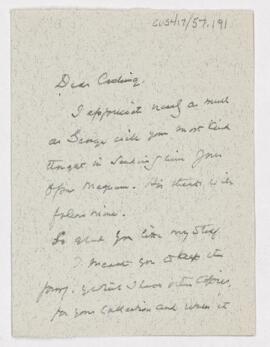 GUS417/57.191
Dear Cooling,
I appreciate nearly as much
as George will your most kind
thought in sending him your
His thanks will
follow mine.
So glad you like my stuff
I meant you to keep the
I have other copies,
for your collection and when it